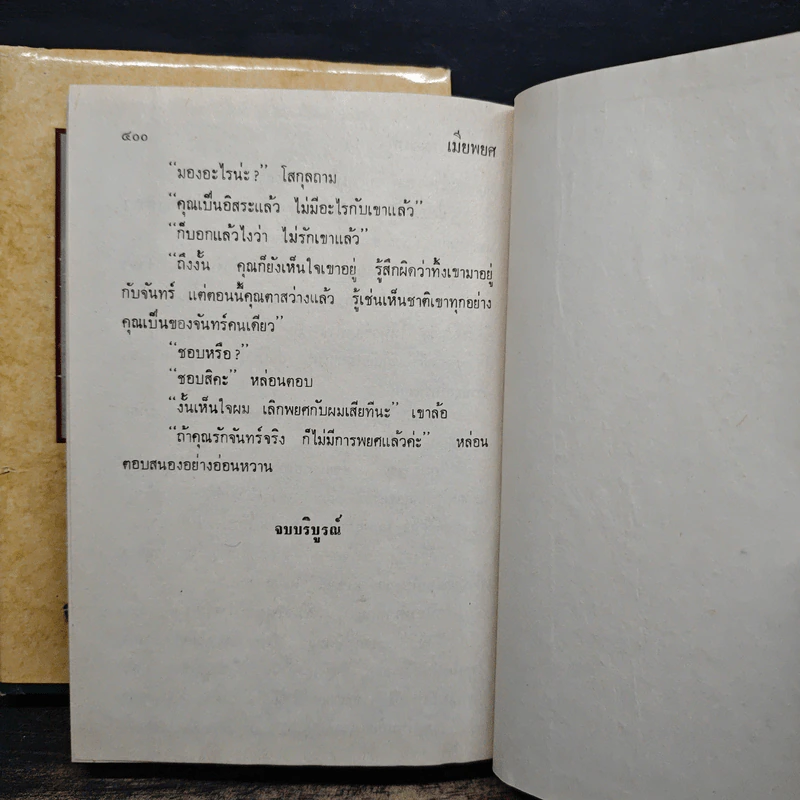 ๔๐๐
เมียพยศ
“มองอะไรน่ะ?” โสกุลถาม
“คุณเป็นอิสระแล้ว ไม่มีอะไรกับเขาแล้ว”
“ก็บอกแล้วไงว่า ไม่รักเขาแล้ว”
“ถึงงั้น คุณก็ยังเห็นใจเขาอยู่ รู้สึกผิดว่าทิ้งเขามาอยู่
กับจันทร์ แต่ตอนนี้คุณตาสว่างแล้ว รู้เช่นเห็นชาติเขาทุกอย่าง
คุณเป็นของจันทร์คนเดียว”
“ชอบหรือ?”
“ชอบสิคะ” หล่อนตอบ
“งั้นเห็นใจผม เลิกพยศกับผมเสียทีนะ” เขาล้อ
“ถ้าคุณรักจันทร์จริง ก็ไม่มีการพยศแล้วค่ะ” หล่อน
ตอบสนองอย่างอ่อนหวาน
จบบริบูรณ์